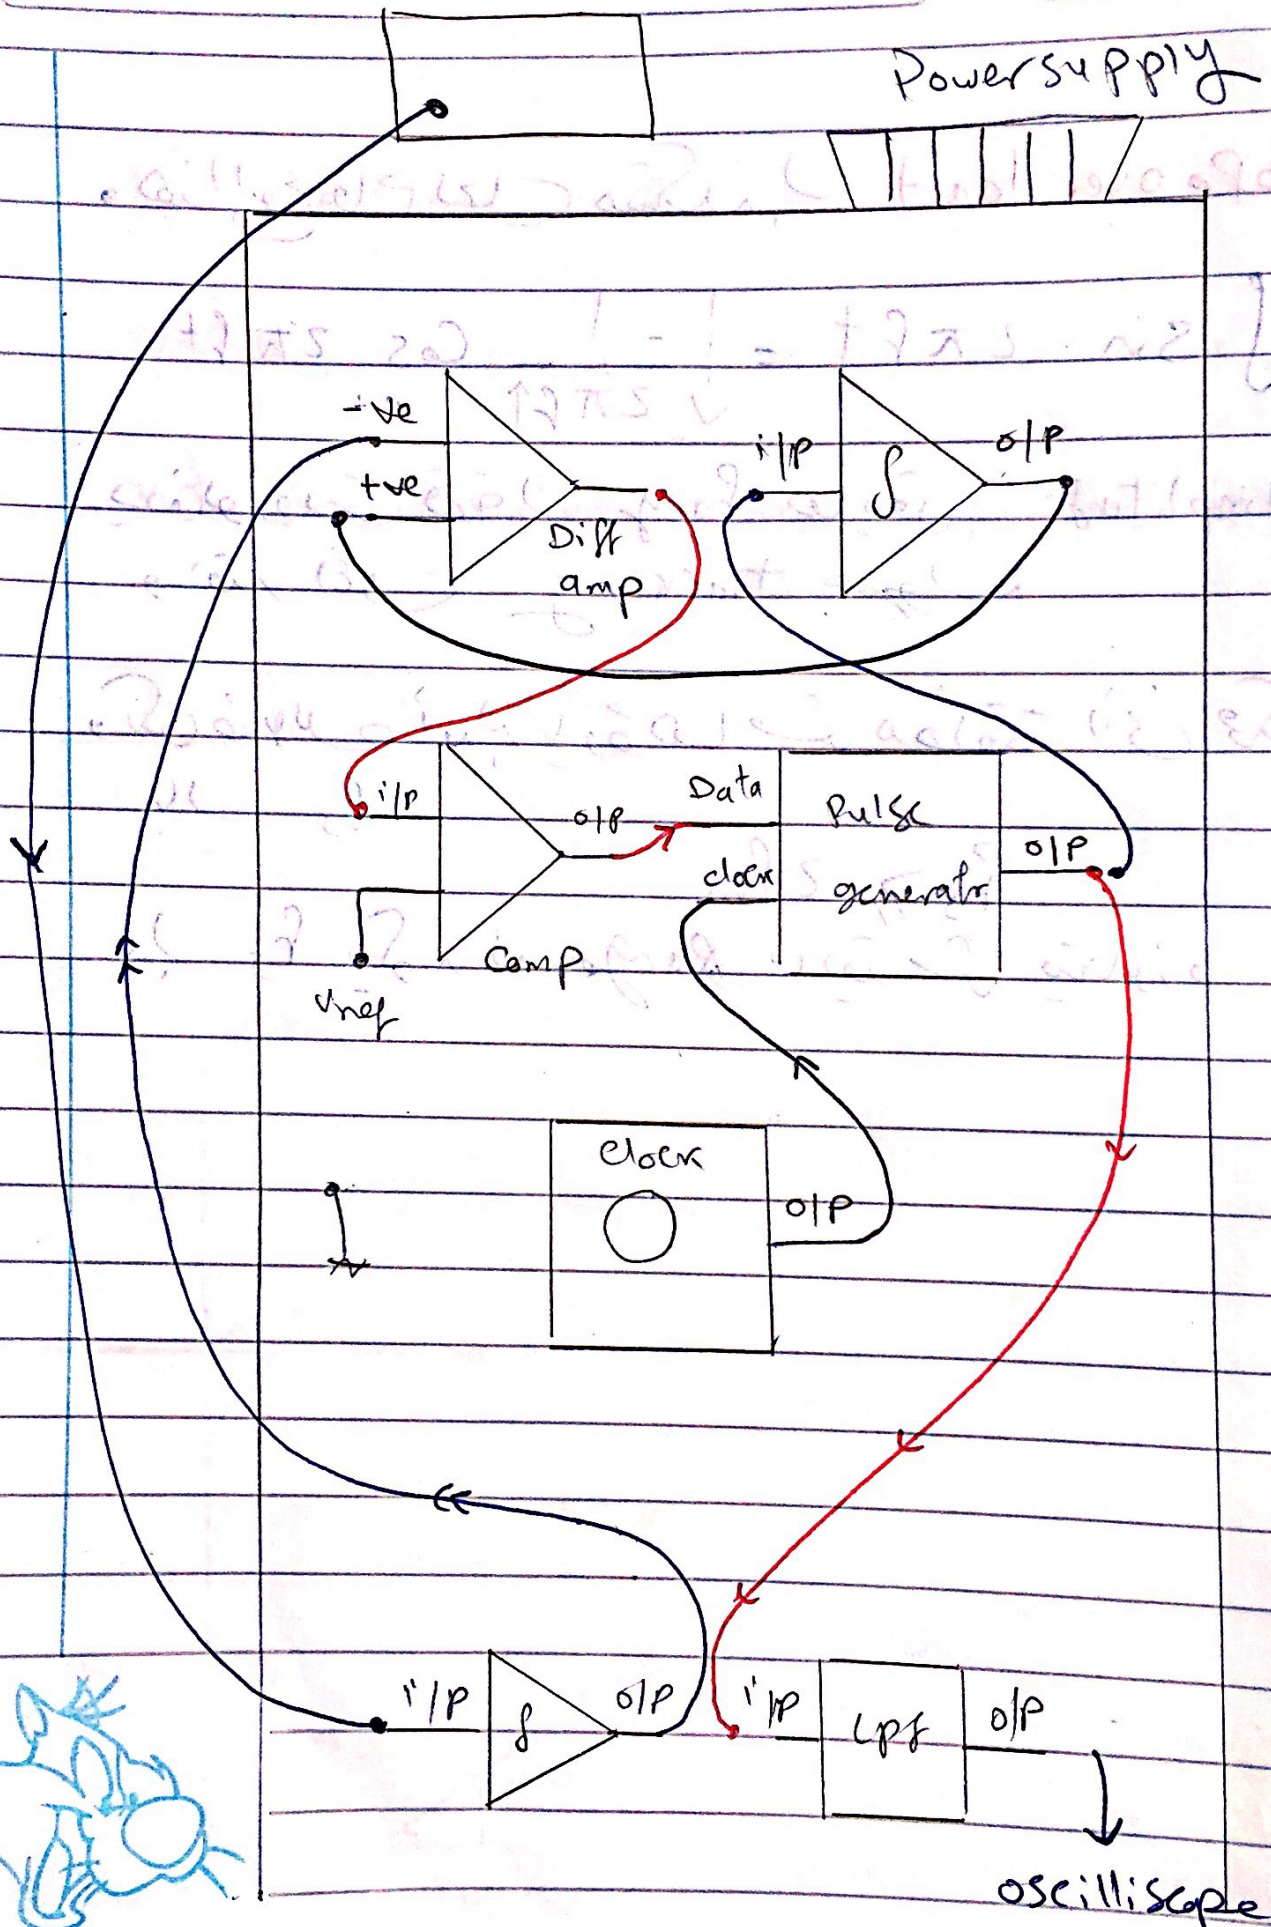 Powersupply
-ve
+ve
Diff
amp
i/p
∫
o/p
i/p
o/p
Data
clock
Pulse
generatr
o/p
Comp
Vref
Clock
o/p
i/p
∫
o/p
i/p
Lpf
o/p
oscilliscope